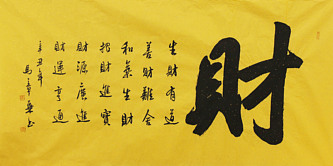 財
生財有道
善財難舍
和氣生財
招財進寶
財源廣進
財運亨通
辛丑年